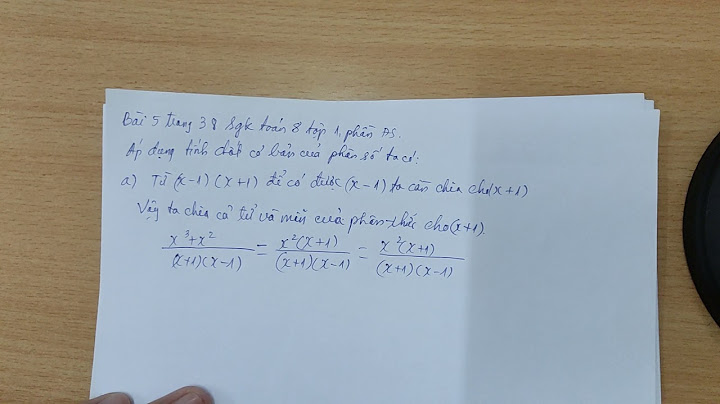 Bài 5 trang 38 Sgk toán 8 tập 1, phần ĐS.
Áp dụng tính chất cơ bản của phân số ta có:
a) Từ (x-1)(x+1) để có được (x-1) ta cần chia cho (x+1)
Vậy ta chia cả tử và mẫu của phân thức cho (x+1).
x³+x² / (x+1)(x-1) = x²(x+1) / (x+1)(x-1) = x²(x+1) / (x+1)(x-1)